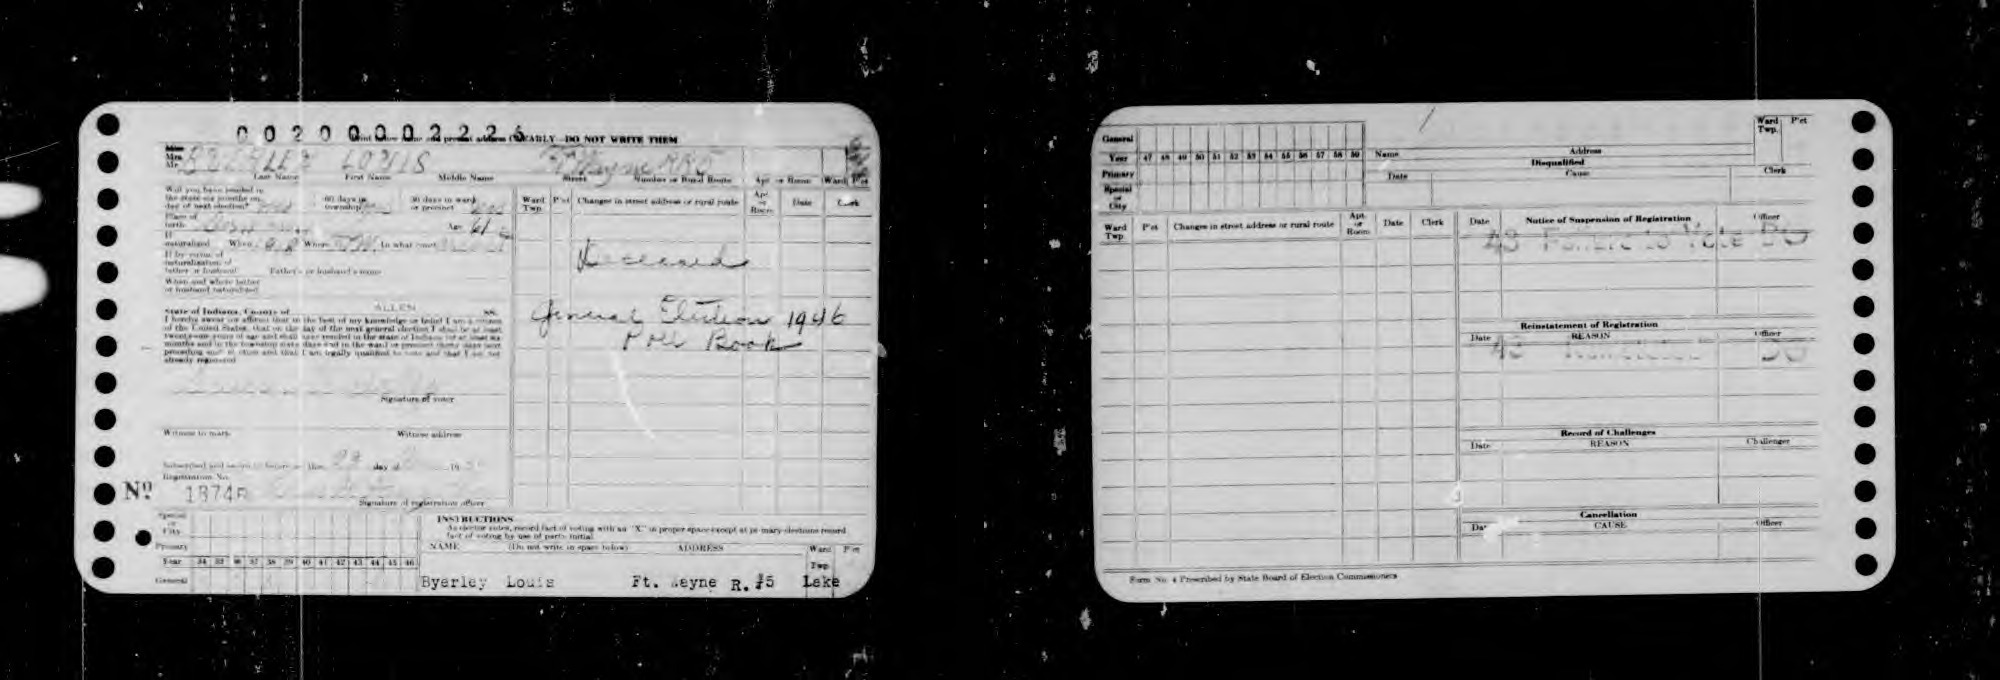 0020000222
Print name and present address CLEARLY—DO NOT WRITE THEM
Mrs.
Mr. BYERLEY LOUIS Ft Wayne RR 5
Last Name First Name Middle Name Street Number or Rural Route Apt. or Room Ward P'ct
Will you have resided in
the state six months on 60 days in 30 days in ward
day of next election? township or precinct
Place of
birth Age 61
If
naturalized When Where In what court
If by virtue of
naturalization of
father or husband Father's or husband's name
When and where father
or husband naturalized
State of Indiana, County of ALLEN SS.
I hereby swear (or affirm) that to the best of my knowledge or belief I am a citizen
of the United States, that on the day of the next general election I shall be at least
twenty-one years of age and shall have resided in the state of Indiana for at least six
months and in the township sixty days and in the ward or precinct thirty days next
preceding such election and that I am legally qualified to vote and that I am not
already registered
Signature of voter
Witness to mark Witness address
Subscribed and sworn to before me this day of 19
Registration No.
Nº 18746
Signature of registration officer
Ward Twp. P'ct Changes in street address or rural route Apt. or Room Date Clerk
Deceased
General Election 1946
Poll Book
Special
or
City
Primary
Year 34 35 36 37 38 39 40 41 42 43 44 45 46
General
INSTRUCTIONS
As elector votes, record fact of voting with an "X" in proper space except at primary elections record
fact of voting by use of party initial
NAME (Do not write in space below) ADDRESS Ward Twp. P'ct
Byerley Louis Ft. Wayne R. #5 Lake
General
Year 47 48 49 50 51 52 53 54 55 56 57 58 59
Primary
Special
or
City
Name Address Ward Twp. P'ct
Disqualified
Date Cause Clerk
Ward Twp. P'ct Changes in street address or rural route Apt. or Room Date Clerk
Date Notice of Suspension of Registration Officer
Failure to Vote
Reinstatement of Registration
Date REASON Officer
Record of Challenges
Date REASON Challenger
Cancellation
Date CAUSE Officer
Form No. 4 Prescribed by State Board of Election Commissioners